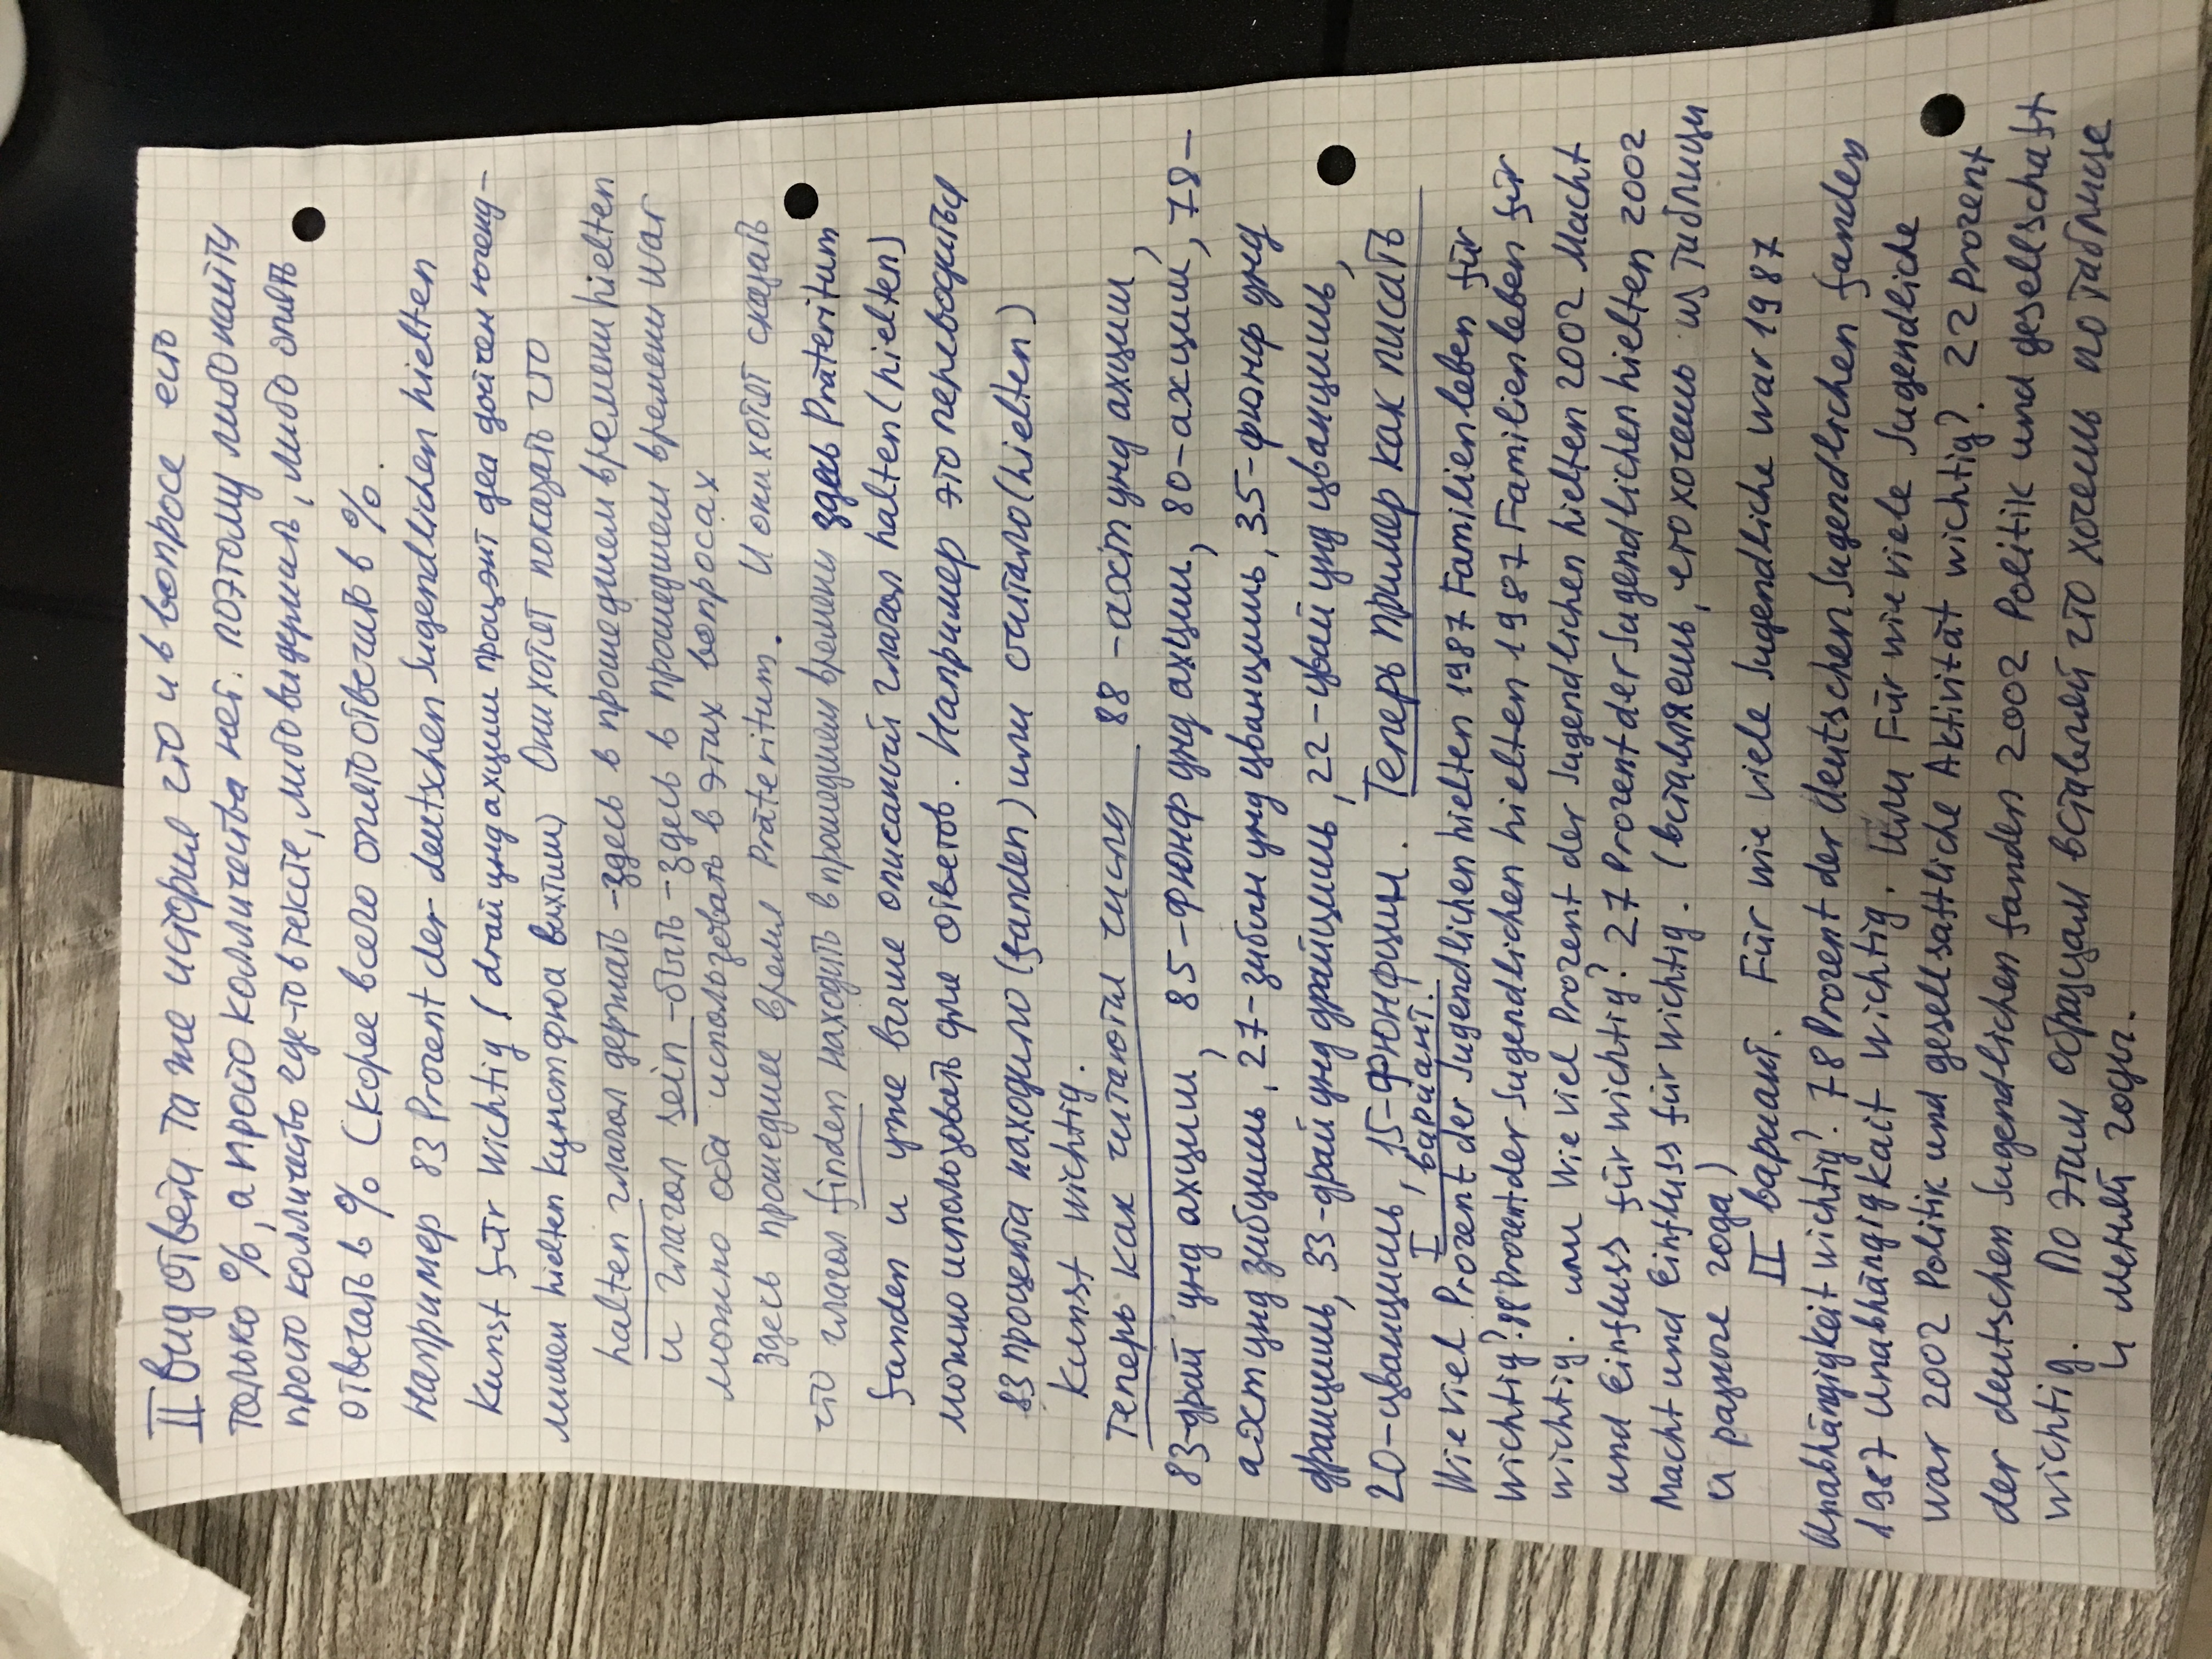 II Вид ответа та же история что и в вопросе есть
только %, а просто колличества нет. поэтому либо найти
просто колличество где-то в тексте, либо выдержил, либо опять
отвечать в % Скорее всего опять отвечать в %.
например 83 Prozent der deutschen Jugendlichen hielten
Kunst für wichtig (драй унд ахциш процэнт деа дойчен югенд-
лишен hielten Кунст фюа вихтиш) Они хотет показать что
halten глагол держать - здесь в прошедшем времени hielten
и глагол sein - быть - здесь в прошедшем времени war
можно оба использовать в этих вопросах
здесь прошедшее время Präteritum. И они хотет сказать
что глагол finden находить в прошедшем времени здесь Präteritum
fanden и уже выше описаный глагол halten (hielten)
можно использовать для ответов. Например это переводиться
83 процента находило (fanden) или считало (hielten)
Kunst wichtig.
Теперь как читаются числа 88 - ахст унд ахциш,
83-драй унд ахциш, 85-фюнф унд ахциш, 80-ахциш, 78-
ахст унд зибциш, 27-зибн унд цванциш, 35-фюнф унд
драицишь, 33-драй унд драйцишь, 22-цвай унд цванцишь,
20-цванцишь, 15-фюнфцин. Теперь пример как писать
I вариант.
Wie viel Prozent der Jugendlichen hielten 1987 Familienleben für
wichtig? 88 Prozent der Jugendlichen hielten 1987 Familienleben für
wichtig. или Wie viel Prozent der Jugendlichen hielten 2002 Macht
und Einfluss für wichtig? 27 Prozent der Jugendlichen hielten 2002
Macht und Einfluss für wichtig. (вставляешь, что хочешь из таблици
и разные года)
II вариант. Für wie viele Jugendliche war 1987
Unabhängigkeit wichtig? 78 Prozent der deutschen Jugendlichen fanden
1987 Unabhängigkait wichtig. Или Für wie viele Jugendliche
war 2002 Politik und gesellsaftliche Aktivität wichtig? 22 Prozent
der deutschen Jugendlichen fanden 2002 Politik und gesellschaft
wichtig. По этим образцам вставляй что хочешь по таблице
и меняй годы.